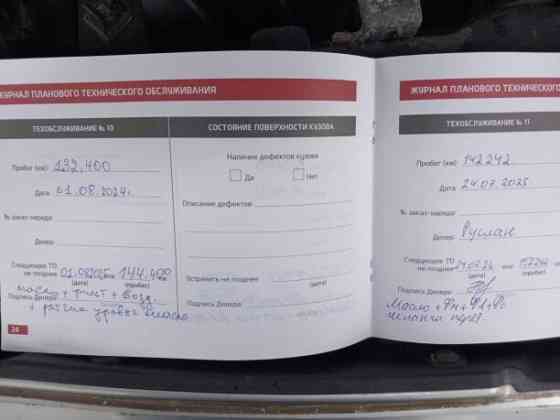 ЖУРНАЛ ПЛАНОВОГО ТЕХНИЧЕСКОГО ОБСЛУЖИВАНИЯ
ТЕХОБСЛУЖИВАНИЕ № 10
Пробег (км) 132.400
Дата 01.08.2024г.
№ заказ-наряда
Дилер
Следующее ТО
не позднее 01.08.2025 или 144.400
(дата) (пробег)
масло + фист + возд.
Подпись Дилера
24
СОСТОЯНИЕ ПОВЕРХНОСТИ КУЗОВА
Наличие дефектов кузова
Да Нет
Описание дефектов
Устранить не позднее
(дата)
Подпись Дилера
ЖУРНАЛ ПЛАНОВОГО ТЕХНИЧЕСКОГО
ТЕХОБСЛУЖИВАНИЕ № 11
Пробег (км) 142242
Дата 24.07.2025
№ заказ-наряда
Дилер Руслан
Следующее ТО
не позднее или
(дата) (пробег)
Подпись Дилера
Масло +